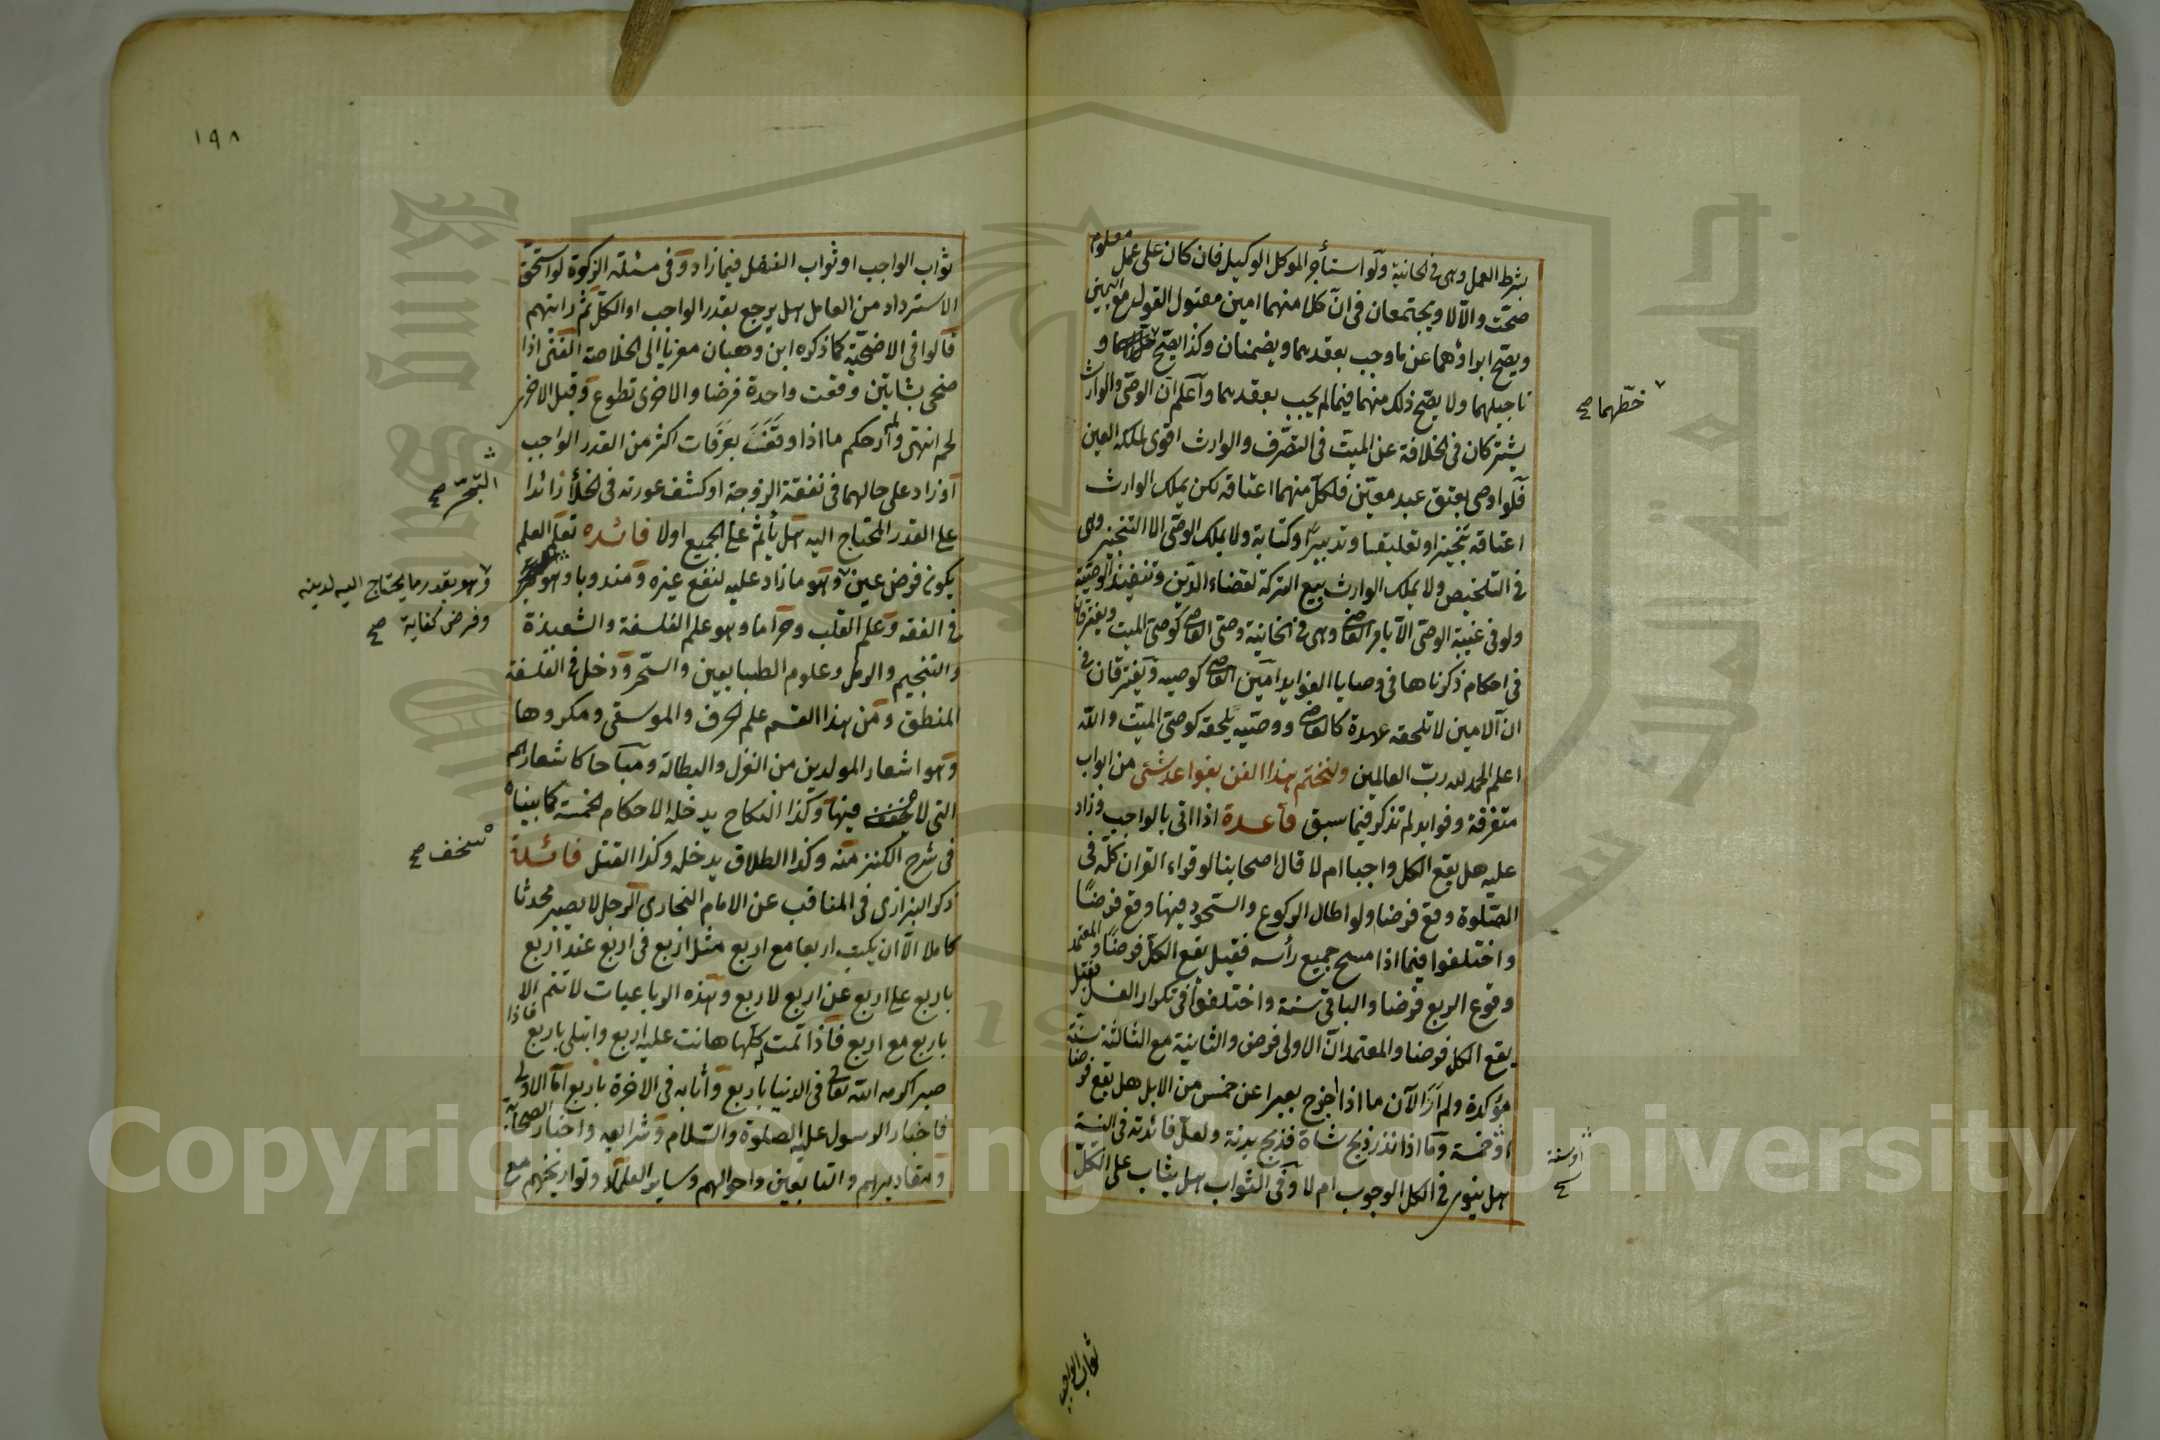 بشرط العمل وهى فى الخانية ولو استأجر الموكل الوكيل فان كان على عمل معلوم
صحت والا لا ويجتمعان فى ان كلا منهما امين مقبول القول مع اليمين
ويصح ابراؤهما عن ما وجب بعقدهما ويضمنان وكذا يصح و
تاجيلهما ولا يصح ذلك منهما فيما لم يجب بعقدهما واعلم ان الوصى والوارث
يشتركان فى الخلافة عن الميت فى التصرف والوارث اقوى لملكه العين
فلو اوصى بعتق عبد معين فلكل منهما اعتاقه لكن يملك الوارث
اعتاقه تنجيزا وتعليقا وتدبيرا وكتابة ولا يملك الوصى الا التنجيز وهى
فى التلخيص ولا يملك الوارث بيع التركة لقضاء الدين وتنفيذ الوصية
ولو فى غيبة الوصى الا بامر القاضى وهى فى الخانية وصى القاضى كوصى الميت ويفترقان
فى احكام ذكرناها فى وصايا الفوايد امين القاضى كوصيه ويفترقان فى
ان الامين لا تلحقه عهدة كالقاضى ووصيه تلحقه كوصى الميت والله
اعلم الحمد لله رب العالمين ولنختم هذا الفن بقواعد شتى من ابواب
متفرقة وفوايد لم تذكر فيما سبق قاعدة اذا اتى بالواجب وزاد
عليه هل يقع الكل واجبا ام لا قال اصحابنا لو قراء القران كله فى
الصلوة وقع فرضا ولو اطال الركوع والسجود فيها وقع فرضا
واختلفوا فيما اذا مسح جميع رأسه فقيل يقع الكل فرضا والمعتمد
وقوع الربع فرضا والباقى سنة واختلفوا فى تكرار الغسل فقيل
يقع الكل فرضا والمعتمد ان الاولى فرض والثانية مع الثالثة سنة
مؤكدة ولم ار الآن ما اذا اخرج بعيرا عن خمس من الابل هل يقع فرضا
او خمسه وما اذا نذر ذبح شاة فذبح بدنة ولعل فائدته فى النية
هل ينوى فى الكل الوجوب ام لا وفى الثواب هل يثاب على الكل
خطهما صح
او سنة صح
ثواب الواجب
١٩٨
ثواب الواجب او ثواب النفل فيما زاد وفى مسئلة الزكوة لو استحق
الاسترداد من العامل هل يرجع بقدر الواجب او الكل ثم رايتهم
قالوا فى الاضحية كما ذكره ابن وهبان معزيا الى الخلاصة الغنى اذا
ضحى بشاتين وقعت واحدة فرضا والاخرى تطوع وقيل الاخرى
لحم انتهى ولم ار حكم ما اذا وقف بعرفات اكثر من القدر الواجب
او زاد على حالهما فى نفقة الزوجة او كشف عورته فى الخلأ زائدا
على القدر المحتاج اليه هل يأثم على الجميع اولا فائده تعلم العلم
يكون فرض عين وهو ما زاد عليه لنفع غيره ومندوبا وهو
فى الفقه وعلم القلب وحراما وهو علم الفلسفة والشعبذة
والتنجيم والرمل وعلوم الطبايعين والسحر ودخل فى الفلسفة
المنطق ومن هذا القسم علم الحرف والموسقى ومكروها
وهو اشعار المولدين من الغزل والبطالة ومباحا كاشعارهم
التى لا فيها وكذا النكاح يدخله الاحكام الخمسة كما بيناه
فى شرح الكنز منه وكذا الطلاق يدخله وكذا القتل فائدة
ذكر البزازى فى المناقب عن الامام البخارى الرجل لا يصير محدثا
كاملا الا ان يكتب اربعا مع اربع مثل اربع فى اربع عند اربع
باربع على اربع عن اربع لاربع وهذه الرباعيات لا تتم الا
باربع مع اربع فاذا تمت كلها هانت عليه اربع وابتلى باربع فاذا
صبر اكرمه الله تعالى فى الدنيا باربع واثابه فى الاخرة باربع اما الاولى
فاخبار الرسول عليه الصلوة والسلام وشرايعه واخبار الصحابة
ومقاديرهم والتابعين واحوالهم وساير العلماء وتواريخهم مع
التبحر صح
وهو بقدر ما يحتاج اليه لدينه
وفرض كفاية صح
سخف صح
Copyright © King Saud University
King Saud University
1957